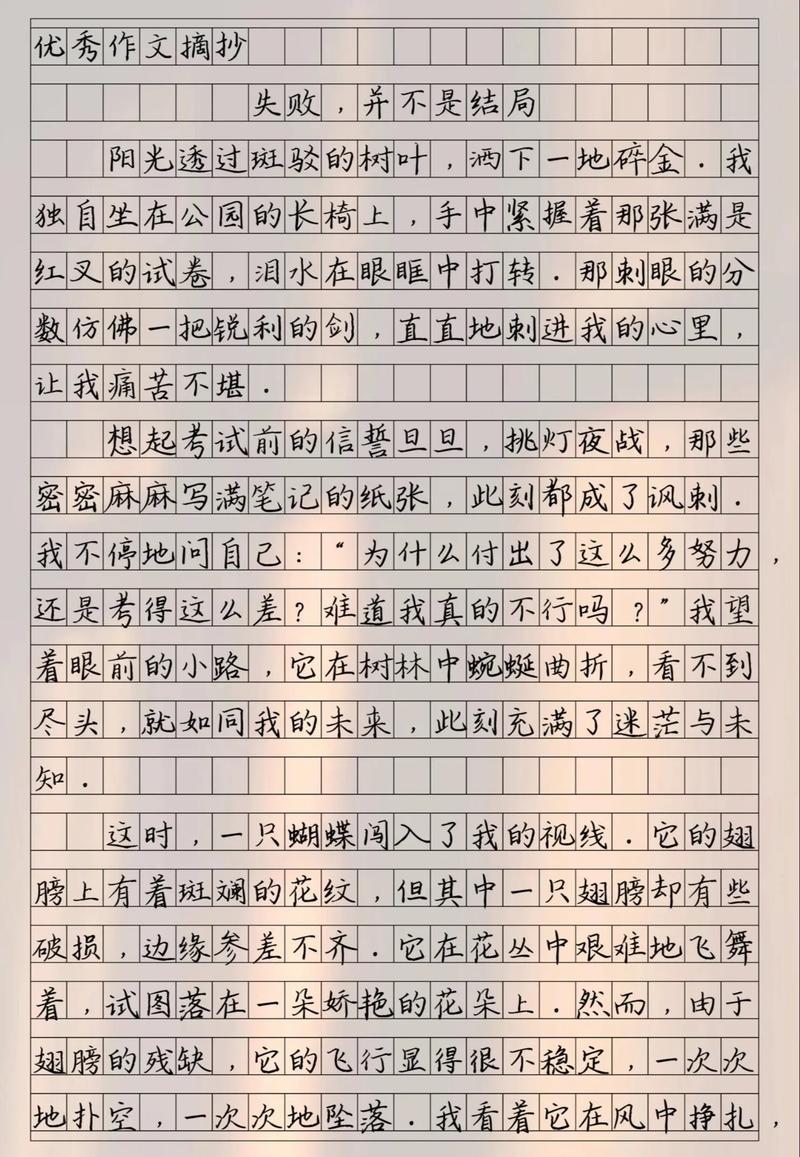 优秀作文摘抄
失败，并不是结局
阳光透过斑驳的树叶，洒下一地碎金．我
独自坐在公园的长椅上，手中紧握着那张满是
红叉的试卷，泪水在眼眶中打转．那刺眼的分
数仿佛一把锐利的剑，直直地刺进我的心里，
让我痛苦不堪．
想起考试前的信誓旦旦，挑灯夜战，那些
密密麻麻写满笔记的纸张，此刻都成了讽刺．
我不停地问自己：“为什么付出了这么多努力，
还是考得这么差？难道我真的不行吗？”我望
着眼前的小路，它在树林中蜿蜒曲折，看不到
尽头，就如同我的未来，此刻充满了迷茫与未
知．
这时，一只蝴蝶闯入了我的视线．它的翅
膀上有着斑斓的花纹，但其中一只翅膀却有些
破损，边缘参差不齐．它在花丛中艰难地飞舞
着，试图落在一朵娇艳的花朵上．然而，由于
翅膀的残缺，它的飞行显得很不稳定，一次次
地扑空，一次次地坠落．我看着它在风中挣扎，